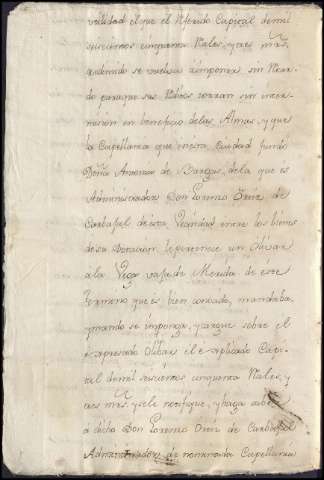 velidad el que el referido Capital de mil
seiscientos cinquenta Reales, y tres mrs.
redimido se vuelva à imponer sin retar-
do para que sus Reditos corran sin inter-
mision en beneficio de las Almas, y que
la Capellania que en esta Ciudad fundó
Doña Antonia de Vargas, de la que es
Administrador Don Lorenzo Ortiz de
Carbajal de esta Vecindad entre los bienes
de su Dotacion le pertenece un Olivar
a la Vega vajo de Merida de este
termino que es bien conocido, mandaba,
y mandó se imponga, y cargue sobre el
expresado Olibar él explicado Capi-
tal de mil seiscientos cinquenta Reales, y
tres mrs. y se le notifique, y haga saber
a dicho Don Lorenzo Ortiz de Carbajal
Administrador de nominada Capellania